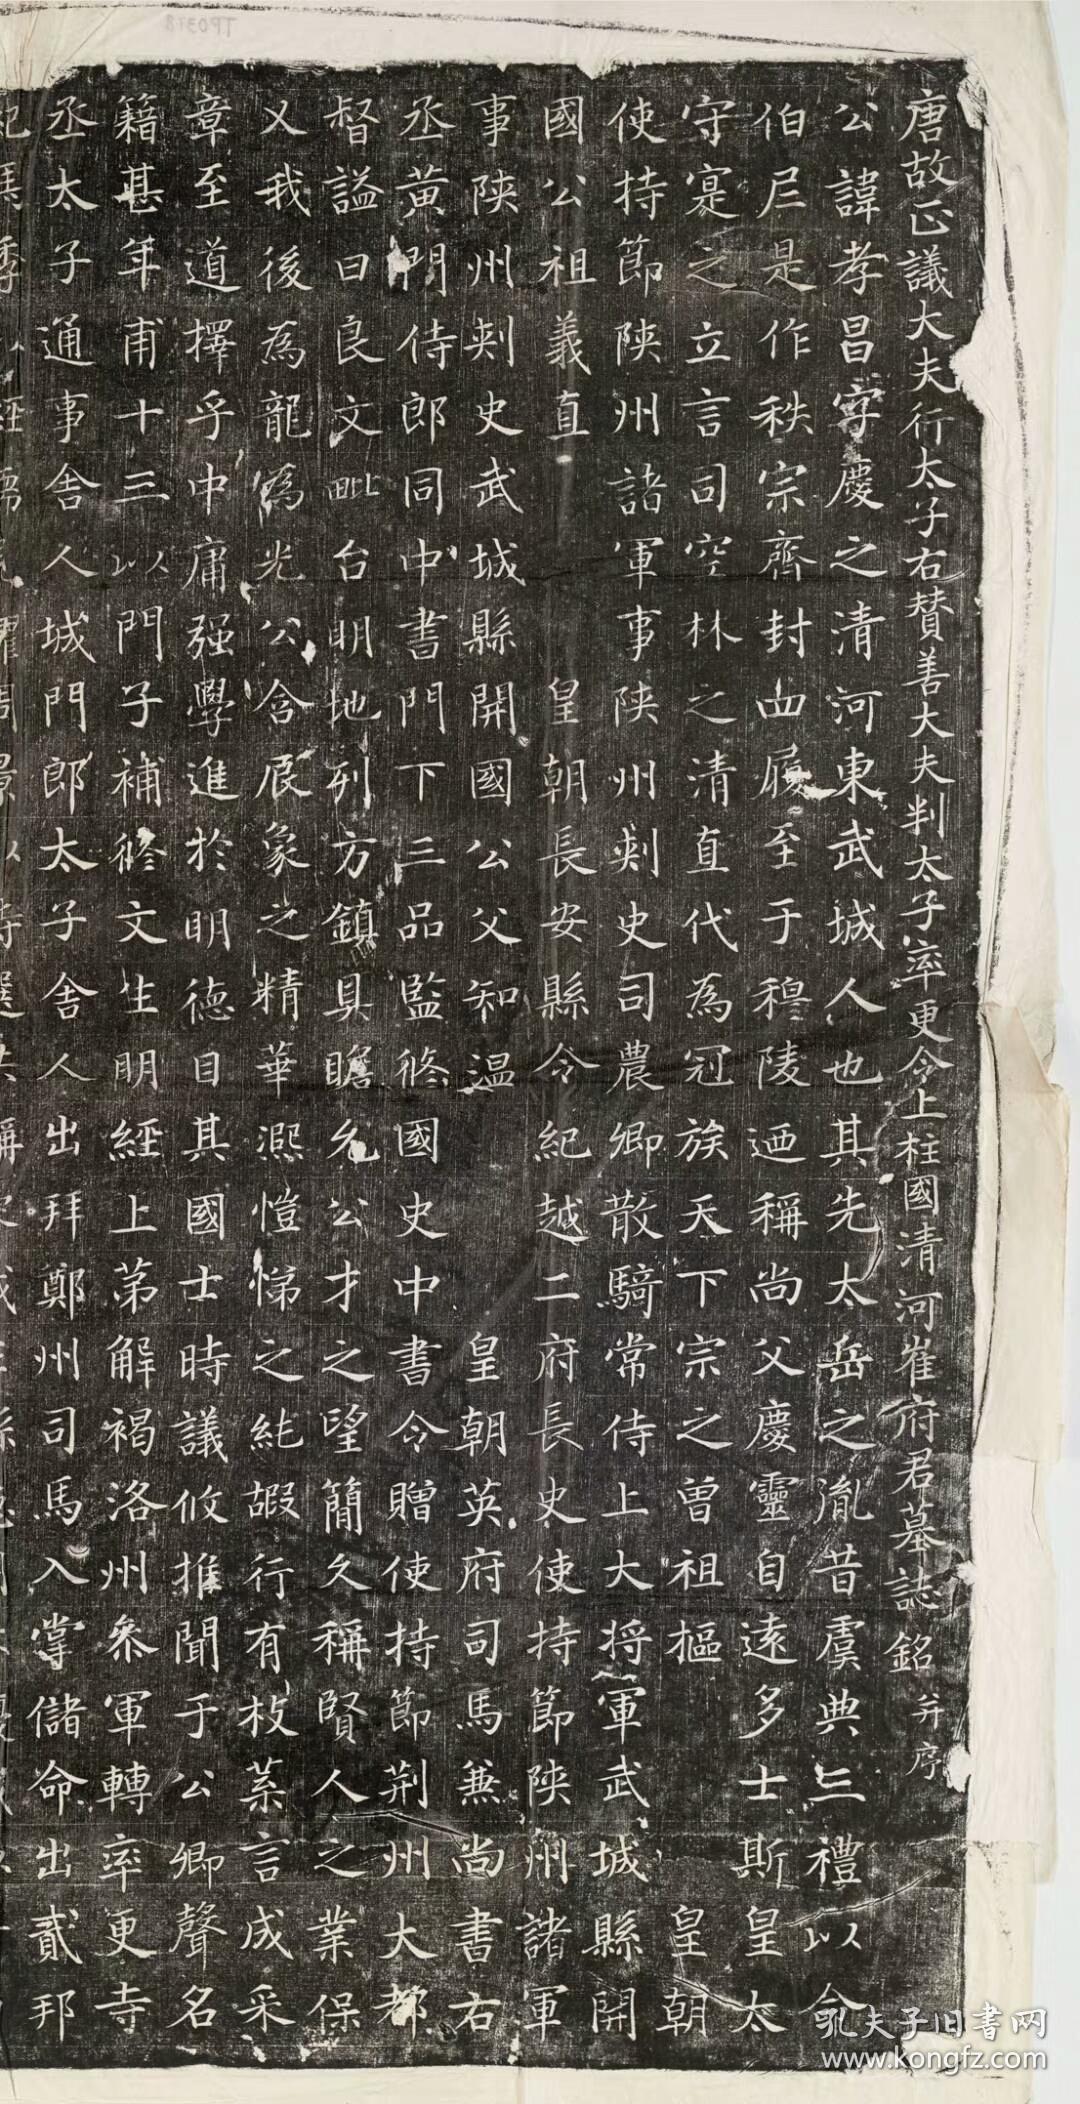 唐故正議大夫行太子右贊善大夫判太子率更令上柱國清河崔府君墓誌銘并序
公諱孝昌字慶之清河東武城人也其先太岳之胤昔虞典三禮以命
伯尼是作秩宗齊封四履至于穆陵迺稱尚父慶靈自遠多士斯皇太
守寔之立言司空林之清直代為冠族天下宗之曾祖樞　皇朝
使持節陝州諸軍事陝州刺史司農卿散騎常侍上大將軍武城縣開
國公祖義直　皇朝長安縣令紀越二府長史使持節陝州諸軍
事陝州刺史武城縣開國公父知溫　皇朝英府司馬兼尚書右
丞黃門侍郎同中書門下三品監修國史中書令贈使持節荊州大都
督謚曰良文毗台明地列方鎮具瞻允公才之望簡久稱賢人之業保
乂我後為龍為光公含辰象之精華濕愷悌之純嘏行有枝葉言成采
章至道擇乎中庸强學進於明德自其國士時議攸推聞于公卿聲名
籍甚年甫十三以門子補修文生明經上第解褐洛州參軍轉率更寺
丞太子通事舍人城門郎太子舍人出拜鄭州司馬入掌儲命出貳邦
TP0318
孔夫子旧书网
www.kongfz.com